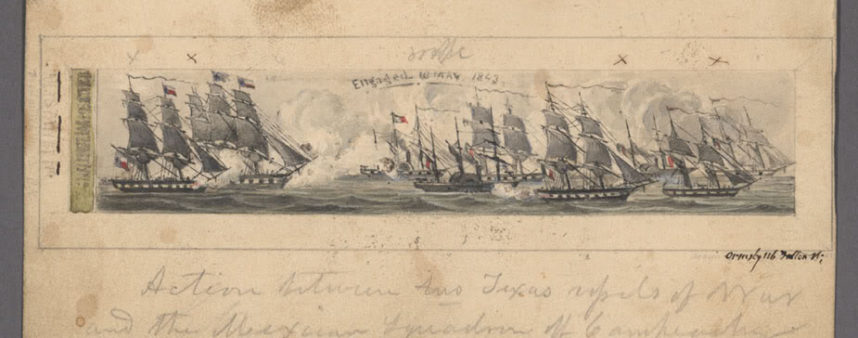 Engaged 16 May 1843
Ormsby 116 Fulton St;
Action between two Texas vessels of War
and the Mexican Squadron off Campeache